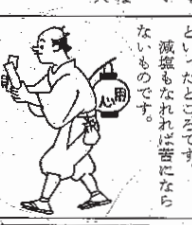 といったところです。
減塩もなれれば苦になら
ないものです。
用心